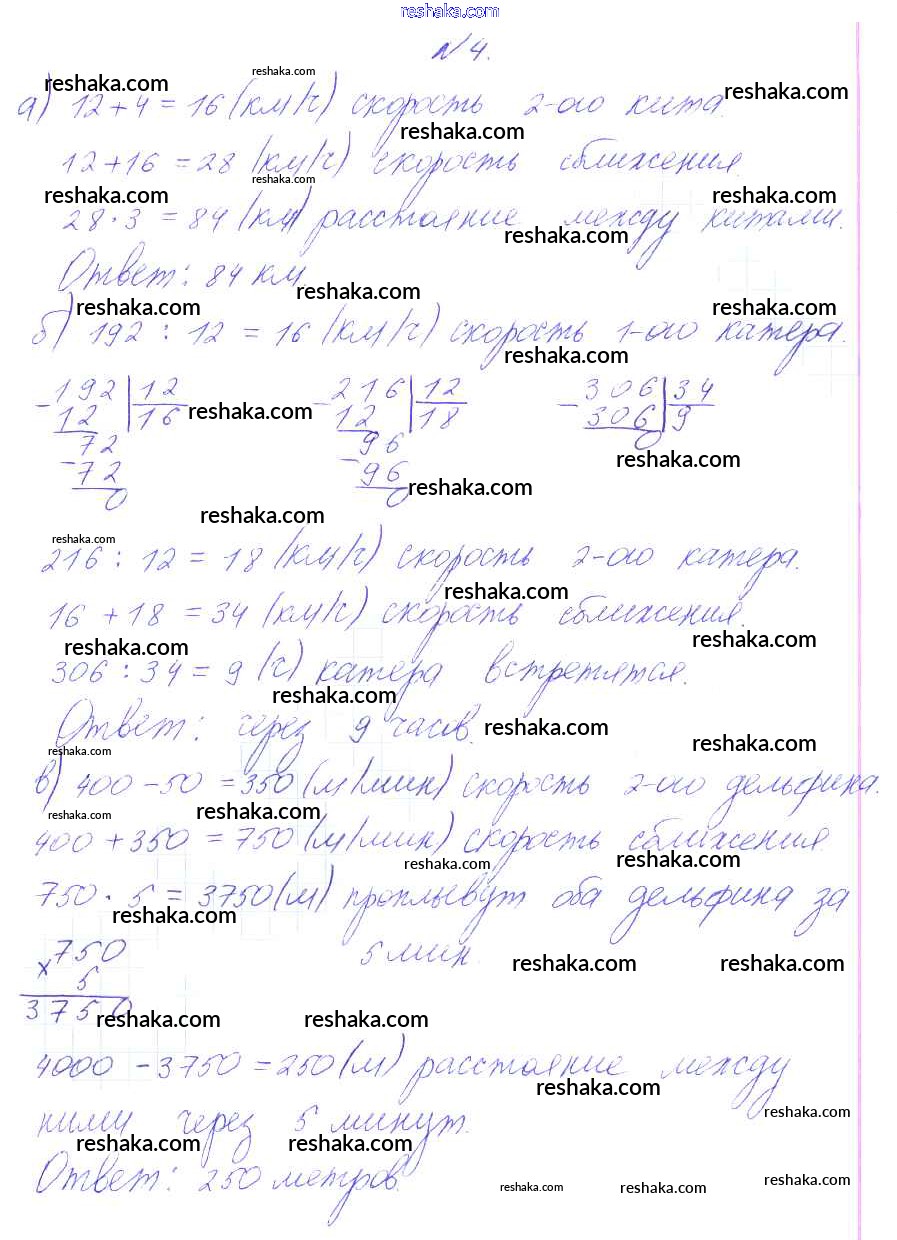 reshaka.com
№ 4.
reshaka.com reshaka.com reshaka.com
а) 12 + 4 = 16 (км/ч) скорость 2-ого кита.
reshaka.com
12 + 16 = 28 (км/ч) скорость сближения.
reshaka.com reshaka.com reshaka.com
28 · 3 = 84 (км) расстояние между китами.
reshaka.com
Ответ: 84 км.
reshaka.com reshaka.com reshaka.com
б) 192 : 12 = 16 (км/ч) скорость 1-ого катера.
reshaka.com
- 192 | 12 - 216 | 12 - 306 | 34
12 | 16 12 | 18 306 | 9
reshaka.com
72 96 0
- 72 - 96
reshaka.com
0 0
reshaka.com
reshaka.com
reshaka.com
216 : 12 = 18 (км/ч) скорость 2-ого катера.
reshaka.com
16 + 18 = 34 (км/ч) скорость сближения.
reshaka.com reshaka.com
306 : 34 = 9 (ч) катера встретятся.
reshaka.com
Ответ: через 9 часов.
reshaka.com reshaka.com reshaka.com
в) 400 - 50 = 350 (м/мин) скорость 2-ого дельфина.
reshaka.com reshaka.com
400 + 350 = 750 (м/мин) скорость сближения
reshaka.com reshaka.com
750 · 5 = 3750 (м) проплывут оба дельфина за
reshaka.com
5 мин.
× 750
5
3750
reshaka.com reshaka.com
reshaka.com reshaka.com
4000 - 3750 = 250 (м) расстояние между
reshaka.com reshaka.com
ними через 5 минут.
reshaka.com reshaka.com
Ответ: 250 метров.
reshaka.com reshaka.com reshaka.com